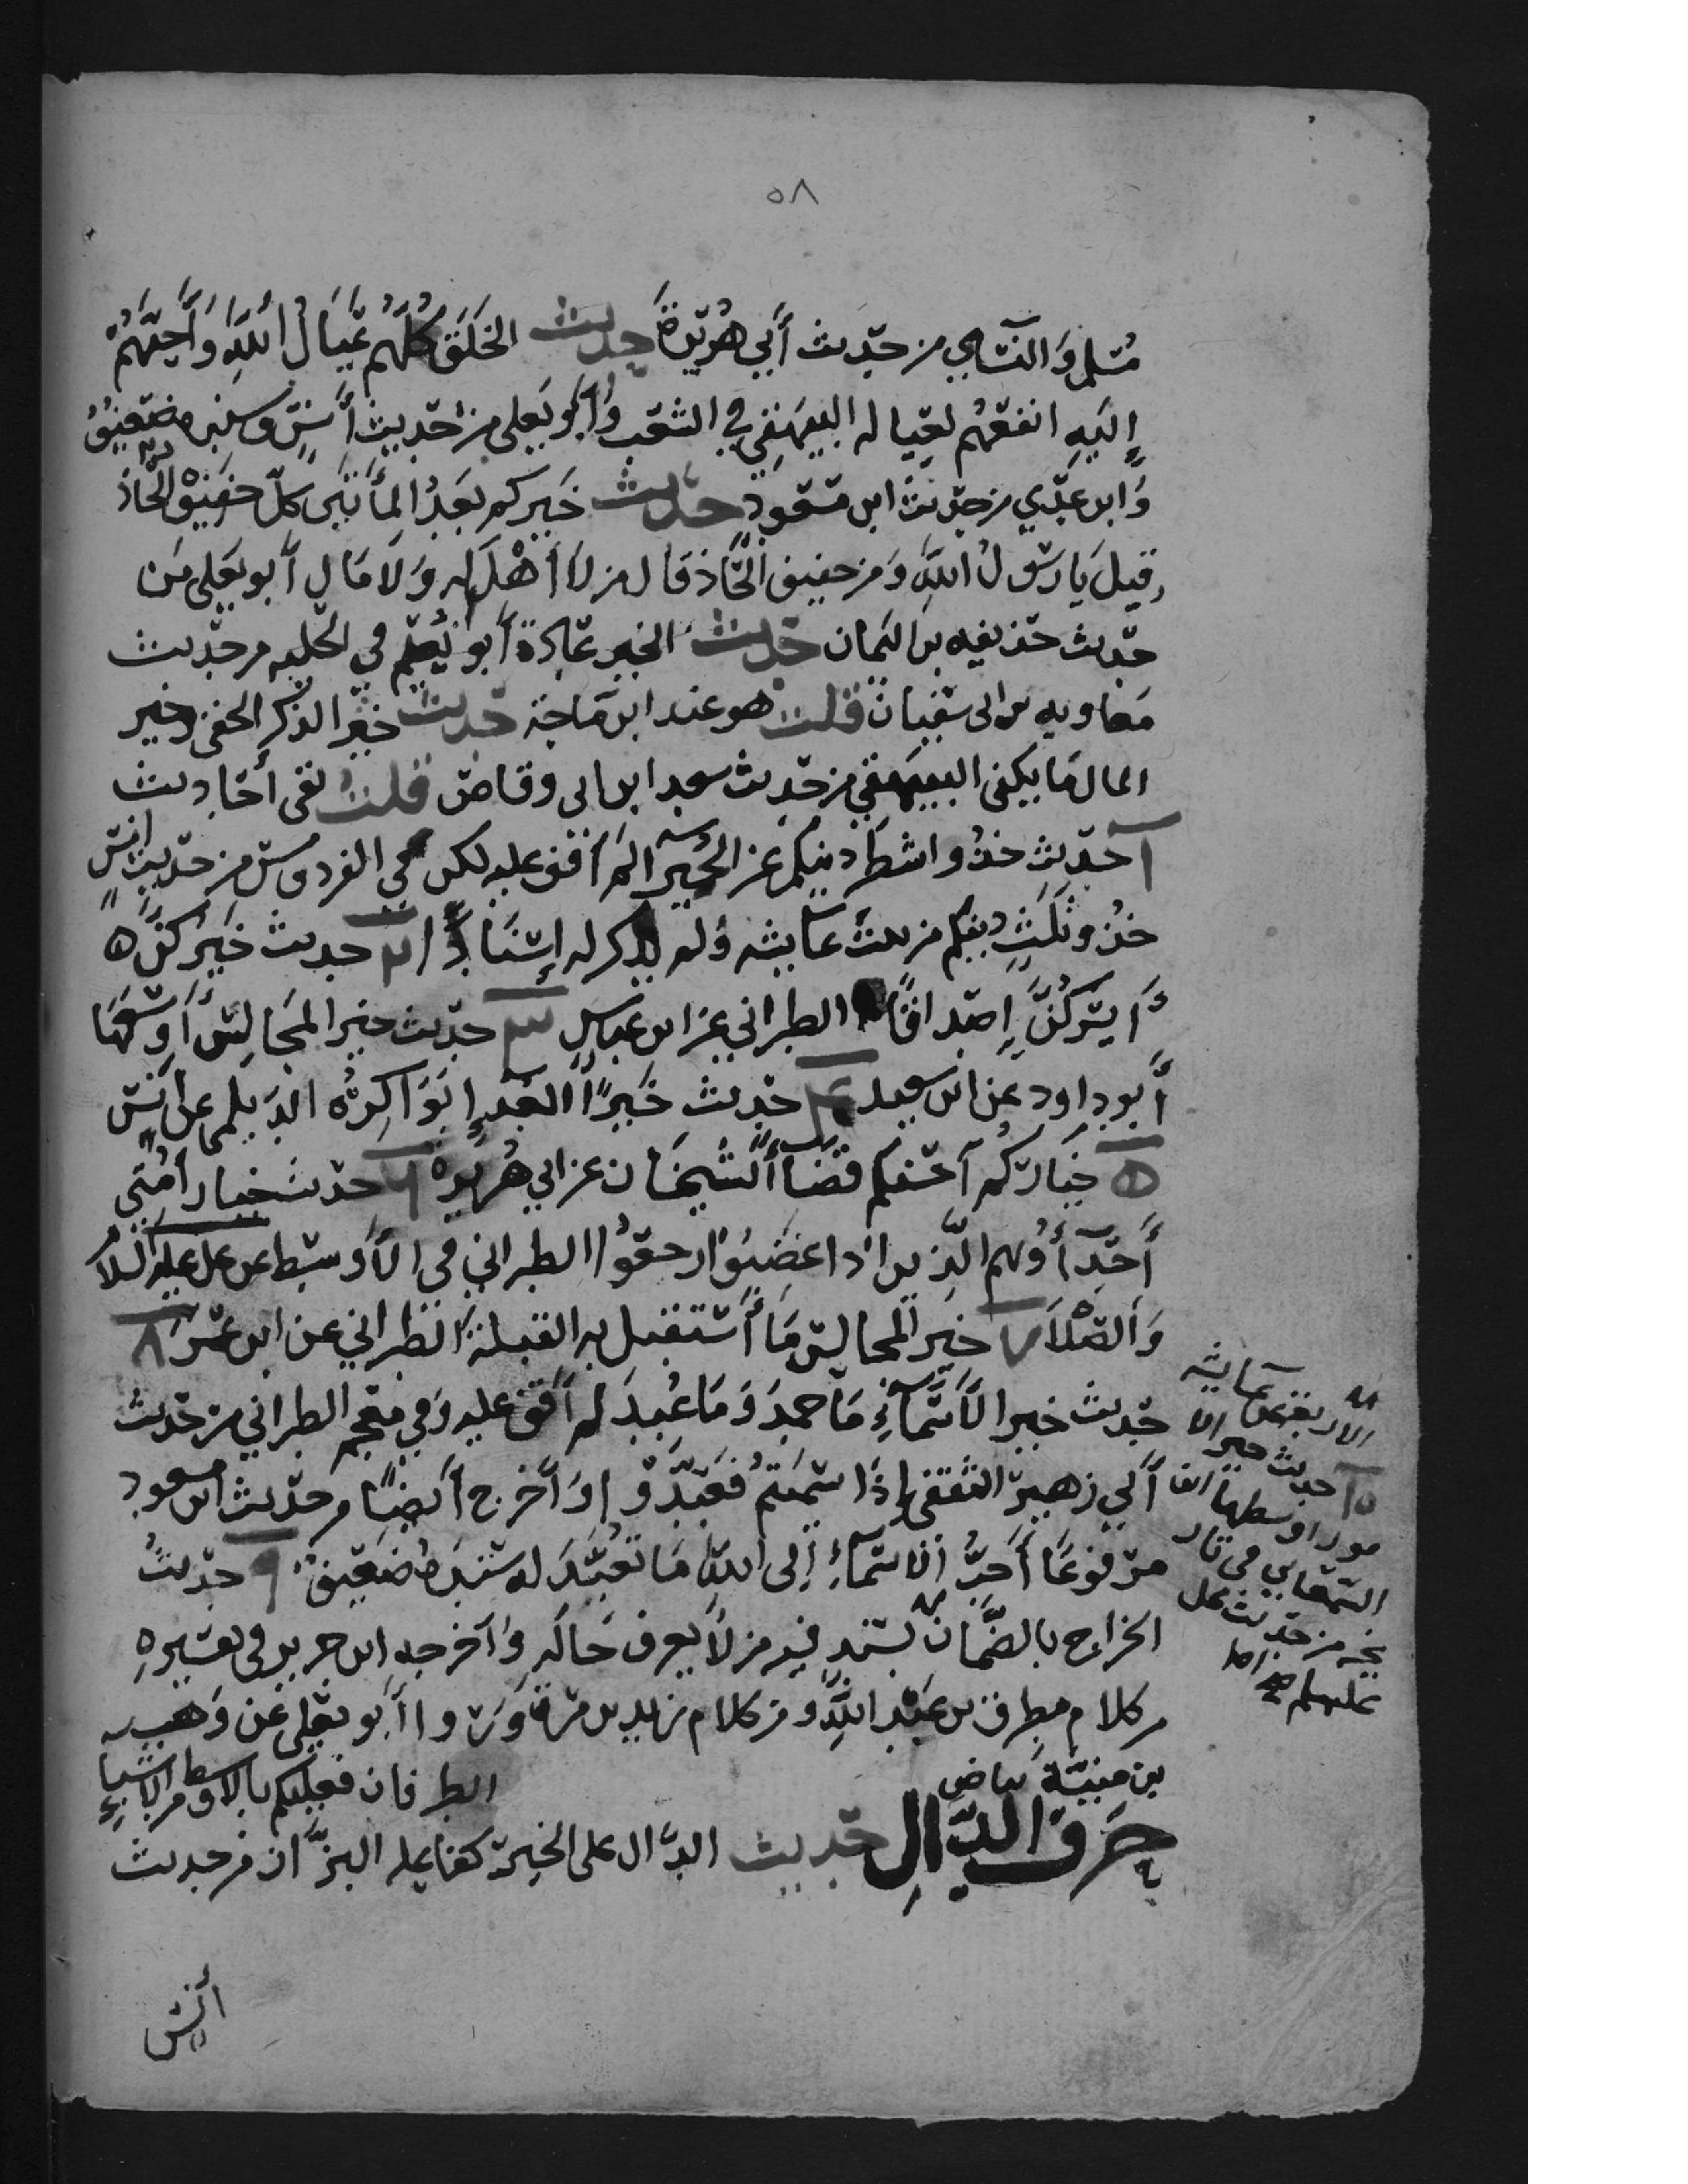 ٥٨
مُسْلم وَالنسَاىي من حَدِيث أَبي هُرَيْرَة حديث الخَلق كُلّهُم عِيَال اللَّهِ وَأَحَبّهُمْ
إِلَيهِ انفعهُم لعِيَاله البيهَقي في الشعَب وَأَبُو يَعلى من حَديث أَنسٍ وسنده ضعيف
وَابن عدِي من حَدِيث ابن مَسْعود حديث خَيركم بعدَ المأتَين كلّ خفيف الحَاذ
قيلَ يَا رسُول اللَّهِ وَمن خفيف الحَاذ قَال من لَا أَهْلَ له وَلَا مَال أَبو يَعلى من
حَديث حذيفه بن اليمَان حديث الخير عَادة أَبو نُعيْم في الحليه من حَديث
معَاويه بن ابى سفيَان قلت هو عند ابن مَاجَة حديث خير الذكر الخفي وخير
المال مَا يكفى البيهقي من حَديث سعد ابن ابى وقاص قلت بقى أحَاديث
١ حَديث خذُوا شطر دينكم عن الحُمَيرَا لم أقف عليه لكن في الفردوس من حَديث انس
خذوا ثلث دينكم من بيت عَايشه ولم يذكر له إِسْنَادًا ٢ حديث خَيرُكنَّ
أَيسَركُنَّ صدَاقًا الطبراني عن ابن عبَاس ٣ حَديث خير المجَالِس أَوسَعهَا
أَبو داود عن ابى سعيد ٤ حَديث خَير الغدَاء بَوَاكِرُهُ الديلمي عن أنس
٥ خيَاركم أحسَنكم قضَاءً الشيخَان عن ابي هُرَيْرَه ٦ حديث خيار أُمّتي
أَحِدّأُؤهم الّذين اذا غضبُوا رجعُوا الطبراني في الأَوسَط عن على عليه السلَام
وَالصّلَاة ٧ خَير المجالس مَا أُسْتقبل به القبلة الطبراني عن ابن عمَر ٨
حَديث خير الأَسْمَآءِ مَا حمد وَمَا عُبِدَ لم أقف عليه وَفي معجم الطبراني من حديث
أَبي زهير الثقفى إِذَا سَمّيتم فعَبّدُوا وَأَخرج أَيضًا من حَديث ابن مسعود
مرفوعًا أَحَبُّ الأَسْمَآءِ إِلى اللَّهِ مَا تُعُبِّدَ له سندهُ ضعيف ٩ حديث
الخراج بالضَّمَان
من كلام مطرف بن عَبْدِ اللَّهِ وَمن كلام يزيد بن مرة وَرَوا أَبو يَعلى عن وَهب
بن منبّه بياض
الطرفان فعليكم بالاوسط من الاشياء
حَرفُ الدَّالِ حَديث الدَّال على الخير كفاعله البزَّار من حديث
أنس
الاربعَة عن عَايشه
١٥ حديث خير الا
مور اوسطها
السمعَاني في
من حَديث على